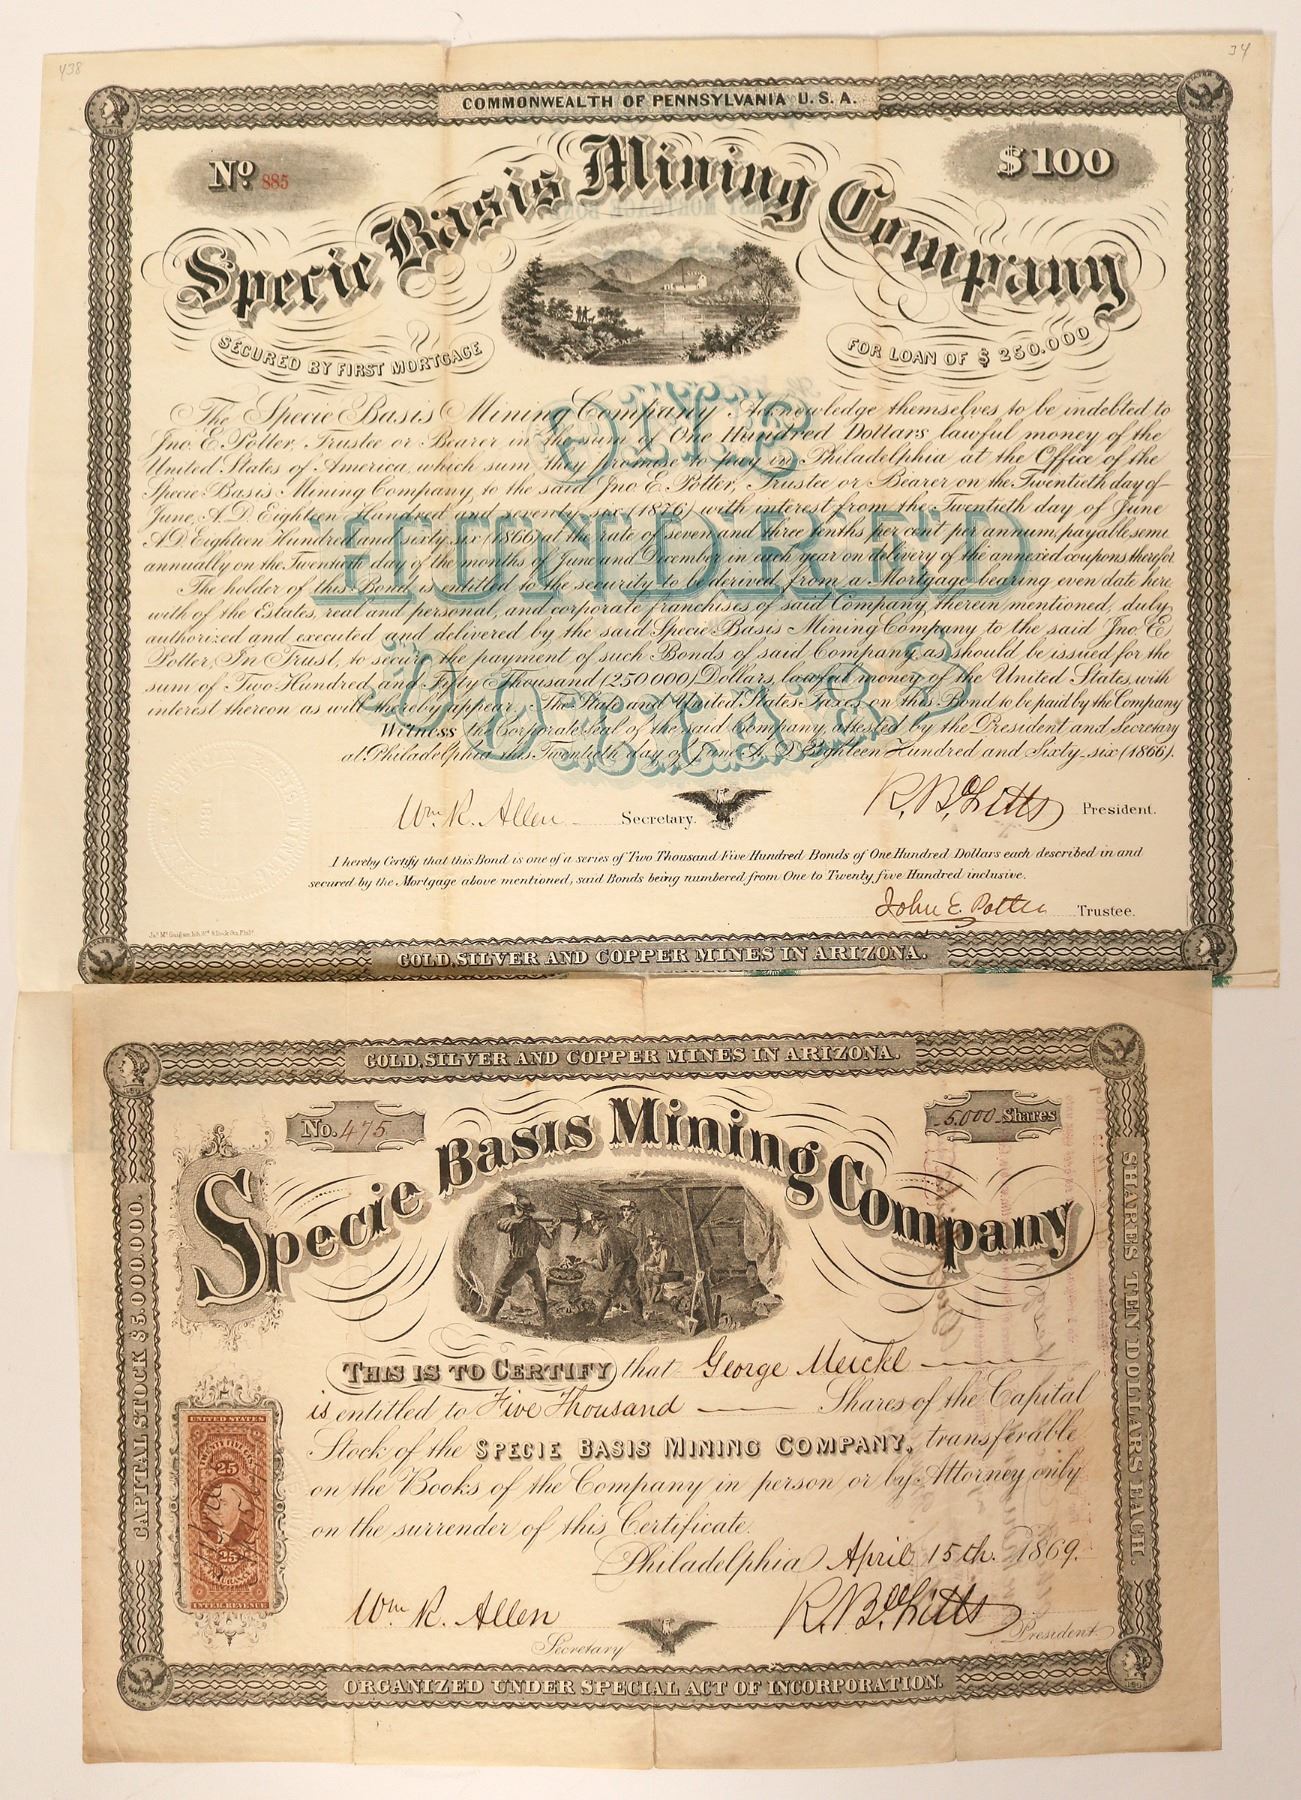 438
34
COMMONWEALTH OF PENNSYLVANIA U.S.A.
No. 885
$100
Specie Basis Mining Company
SECURED BY FIRST MORTGAGE
FOR LOAN OF $ 250.000
The Specie Basis Mining Company Acknowledge themselves to be indebted to
Jno. E. Potter, Trustee or Bearer in the sum of One Hundred Dollars lawful money of the
United States of America, which sum they promise to pay in Philadelphia at the Office of the
Specie Basis Mining Company, to the said Jno. E. Potter, Trustee or Bearer on the Twentieth day of
June, A.D. Eighteen Hundred and seventy-six (1876) with interest from the Twentieth day of June
A.D. Eighteen Hundred and sixty six (1866) at the rate of seven and three tenths per cent per annum, payable semi
annually on the Twentieth day of the months of June and December in each year on delivery of the annexed coupons therefor
The holder of this Bond is entitled to the security to be derived from a Mortgage bearing even date here
with of the Estates, real and personal, and corporate franchises of said Company therein mentioned, duly
authorized and executed and delivered by the said Specie Basis Mining Company to the said Jno. E.
Potter, In Trust, to secure the payment of such Bonds of said Company as should be issued for the
sum of Two Hundred and Fifty Thousand (250 000) Dollars, lawful money of the United States, with
interest thereon as will thereby appear. The State and United States Taxes on this Bond to be paid by the Company
Witness the Corporate Seal of the said Company, attested by the President and Secretary
at Philadelphia this Twentieth day of June A.D. Eighteen Hundred and Sixty-six (1866).
HUNDRED
Wm. R. Allen Secretary.
President.
I hereby Certify that this Bond is one of a series of Two Thousand Five Hundred Bonds of One Hundred Dollars each described in and
secured by the Mortgage above mentioned; said Bonds being numbered from One to Twenty five Hundred inclusive.
John E. Potter Trustee.
GOLD, SILVER AND COPPER MINES IN ARIZONA.
GOLD, SILVER AND COPPER MINES IN ARIZONA.
No. 475
5.000 Shares
Specie Basis Mining Company
CAPITAL STOCK $5.000.000.
SHARES TEN DOLLARS EACH.
THIS IS TO CERTIFY that George Meickl
is entitled to Five Thousand Shares of the Capital
Stock of the SPECIE BASIS MINING COMPANY, transferable
on the Books of the Company in person or by Attorney only
on the surrender of this Certificate.
Philadelphia April 15th. 1869.
UNITED STATES
25
25
INTER. REVENUE
Wm R. Allen
Secretary
President
ORGANIZED UNDER SPECIAL ACT OF INCORPORATION.